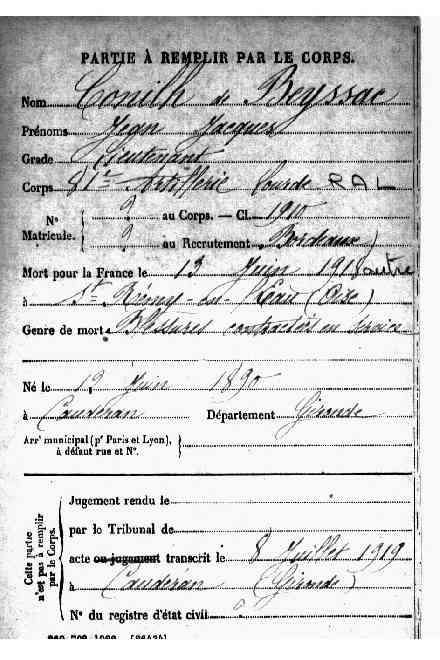 PARTIE À REMPLIR PAR LE CORPS.
Nom Conilh de Beyssac
Prénoms Jean Jacques
Grade Lieutenant
Corps 81e Artillerie lourde RAL
N° Matricule. { ? au Corps. — Cl. 1910
? au Recrutement Bordeaux }
Mort pour la France le 13 Juin 1918 autre
à St. Rémy-en-l'Eau (Oise)
Genre de mort Blessures contractées en service
Né le 12 Juin 1890
à Caudéran Département Gironde
Arrt municipal (pr Paris et Lyon), à défaut rue et N°. {
Cette partie n'est pas à remplir par le Corps.
Jugement rendu le
par le Tribunal de
acte ou jugement transcrit le 8 Juillet 1919
à Caudéran (Gironde)
N° du registre d'état civil